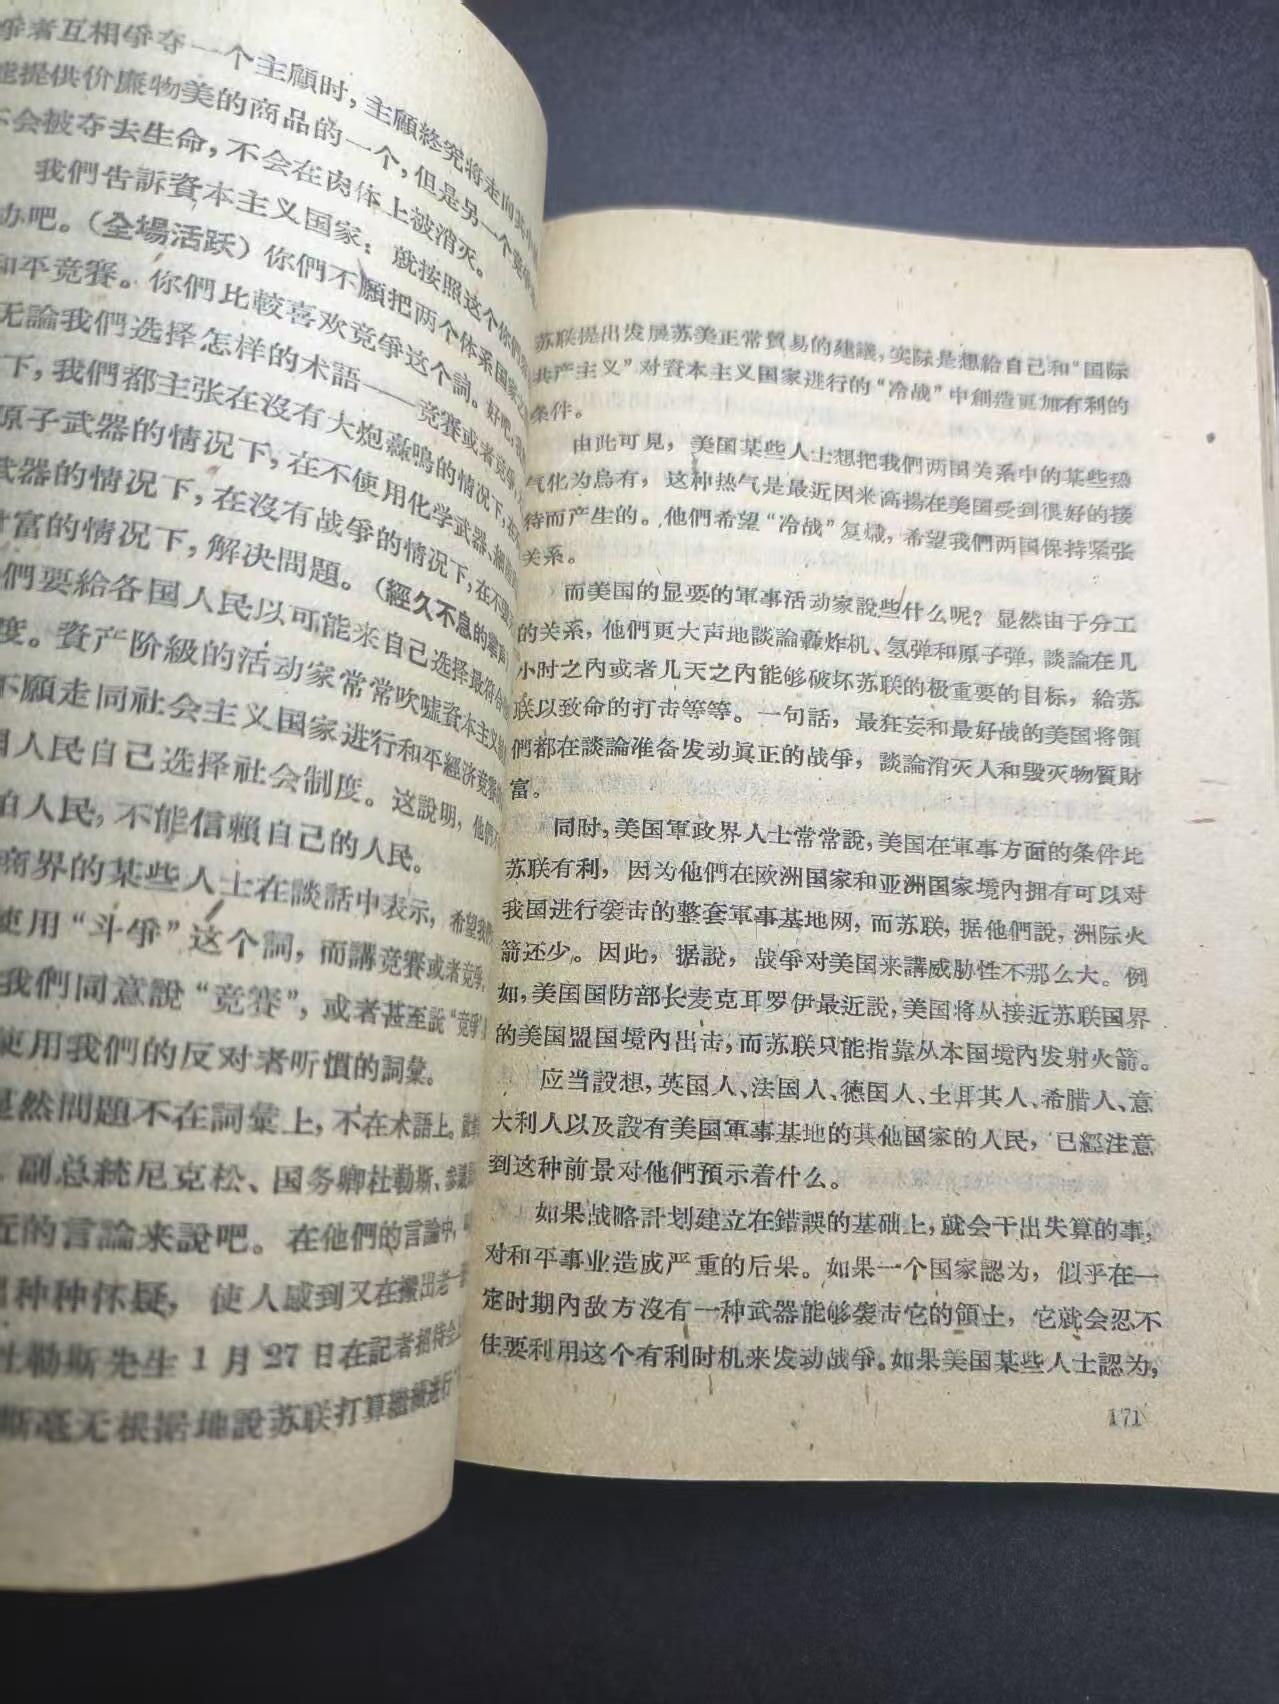 爭者互相爭夺一个主顧时，主顧終究将走向其中
能提供价廉物美的商品的一个，但是另一个竞爭
不会被夺去生命，不会在肉体上被消灭。
我們告訴資本主义国家：就按照这个你們
办吧。（全場活跃）你們不願把两个体系国家之
和平竞賽。你們比較喜欢竞爭这个詞。好吧，
无論我們选择怎样的术語——竞賽或者竞爭，
下，我們都主张在沒有大炮轟鳴的情况下，在
原子武器的情况下，在不使用化学武器、細菌
武器的情况下，在沒有战爭的情况下，在不
財富的情况下，解决問題。（經久不息的掌声）
們要給各国人民以可能来自己选择最符合
度。資产阶級的活动家常常吹噓資本主义
不願走同社会主义国家进行和平經济竞賽
国人民自己选择社会制度。这說明，他們
怕人民，不能信賴自己的人民。
商界的某些人士在談話中表示，希望我們
使用“斗爭”这个詞，而講竞賽或者竞爭，
我們同意說“竞賽”，或者甚至說“竞爭”，
使用我們的反对者听慣的詞彙。
显然問題不在詞彙上，不在术語上。
副总統尼克松、国务卿杜勒斯、参議
近的言論来說吧。在他們的言論中，
出种种怀疑，使人感到又在搬出老一套
杜勒斯先生1月27日在記者招待会
斯毫无根据地說苏联打算繼續进行“
苏联提出发展苏美正常貿易的建議，实际是想給自己和“国际
共产主义”对資本主义国家进行的“冷战”中創造更加有利的
条件。
由此可見，美国某些人士想把我們两国关系中的某些热
气化为烏有，这种热气是最近因米高揚在美国受到很好的接
待而产生的。他們希望“冷战”复熾，希望我們两国保持紧张
关系。
而美国的显要的軍事活动家說些什么呢？显然由于分工
的关系，他們更大声地談論轟炸机、氢弹和原子弹，談論在几
小时之內或者几天之內能够破坏苏联的极重要的目标，給苏
联以致命的打击等等。一句話，最狂妄和最好战的美国将領
們都在談論准备发动眞正的战爭，談論消灭人和毁灭物質財
富。
同时，美国軍政界人士常常說，美国在軍事方面的条件比
苏联有利，因为他們在欧洲国家和亚洲国家境內拥有可以对
我国进行袭击的整套軍事基地网，而苏联，据他們說，洲际火
箭还少。因此，据說，战爭对美国来講威胁性不那么大。例
如，美国国防部长麦克耳罗伊最近說，美国将从接近苏联国界
的美国盟国境內出击，而苏联只能指靠从本国境內发射火箭。
应当設想，英国人、法国人、德国人、土耳其人、希腊人、意
大利人以及設有美国軍事基地的其他国家的人民，已經注意
到这种前景对他們預示着什么。
如果战略計划建立在錯誤的基础上，就会干出失算的事，
对和平事业造成严重的后果。如果一个国家認为，似乎在一
定时期內敌方沒有一种武器能够袭击它的領土，它就会忍不
住要利用这个有利时机来发动战爭。如果美国某些人士認为，
171